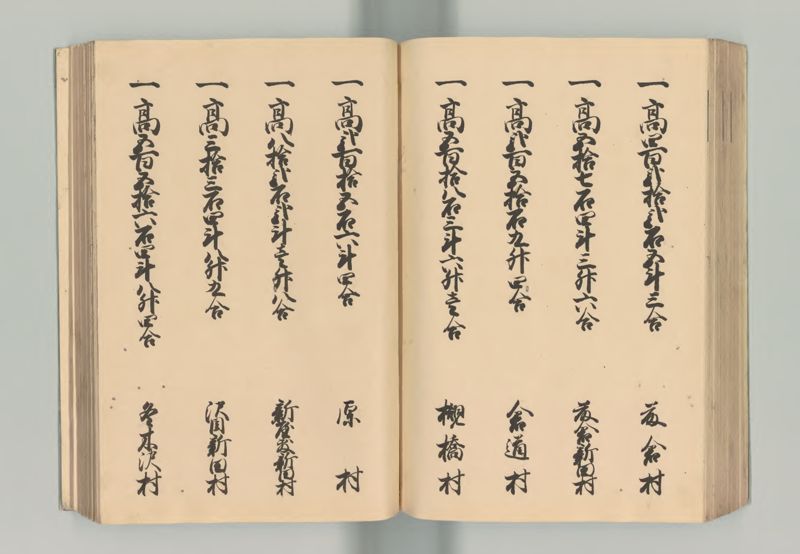 一高四百弐拾弐石五斗三合 倉村
一高五拾七石四斗三升六合 倉新田村
一高弐百五拾石九升四合 倉道村
一高五百拾八石三斗六升壱合 橋村
一高弐百拾五石六斗四合 原村
一高八拾弐石弐斗壱升八合 新屋敷新田村
一高三拾三石四斗八升九合 沢田新田村
一高五百五拾六石四斗八升四合 冬木沢村